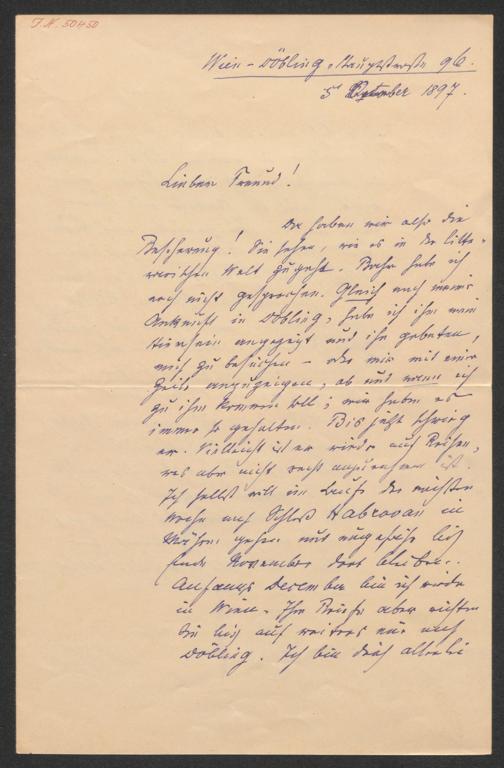 J.N. 50450
Wien-Döbling, Hauptstraße 96.
5 September 1897.
Lieber Freund!
Da haben wir also die
Bescherung! Sie sehen, wie es in der litte-
rarischen Welt zugeht. Bahr habe ich
noch nicht gesprochen. Gleich nach meiner
Ankunft in Döbling, habe ich ihm mein
Hiersein angezeigt und ihn gebeten,
mich zu besuchen – oder mir mit einer
Zeile anzuzeigen, ob und wann ich
zu ihm kommen soll; wir haben es
immer so gehalten. Bis jetzt schwieg
er. Vielleicht ist er wieder auf Reisen,
was aber nicht recht anzunehmen ist.
Ich selbst will im Laufe der nächsten
Woche nach Schloß Habrovan in
Mähren gehen und ungefähr bis
Ende November dort bleiben.
Anfangs Dezember bin ich wieder
in Wien. Ihre Briefe aber richten
Sie bis auf weiteres nur nach
Döbling. Ich bin durch allerlei